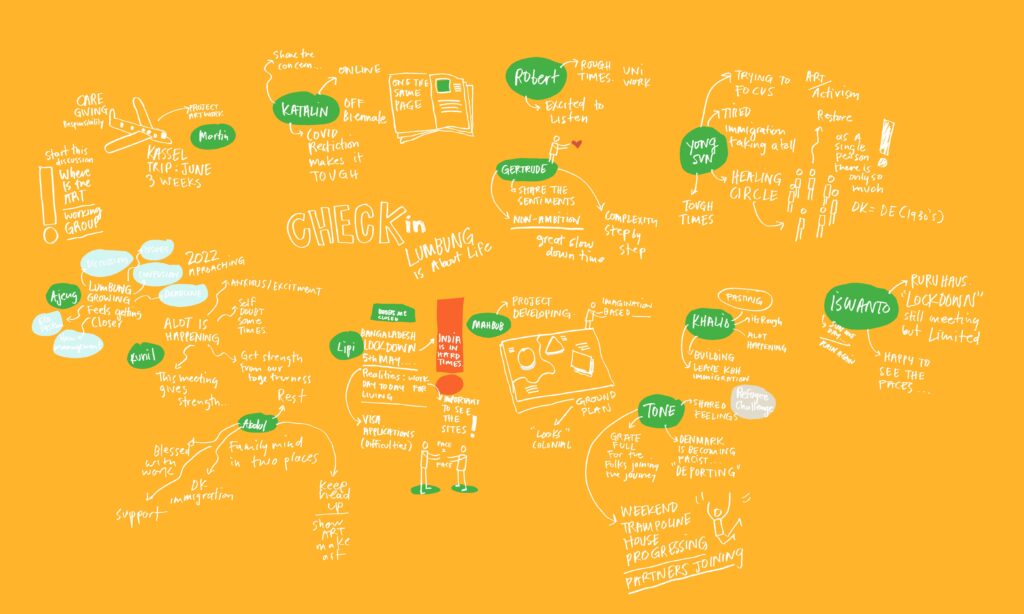 CARE
GIVING
Responsibility
PROJECT
ARTWORK
Martin
KASSEL
TRIP: JUNE
3 WEEKS
Start this
discussion
Where
IS the
ART
working
GROUP
Share the
concern...
ONLINE
KATALIN
OFF
Biennale
COVID
Restiction
makes it
TOUGH
ONE THE
SAME
PAGE
Robert
ROUGH
TIMES.
UNI
WORK
Excited to
Listen
GERTRUDE
SHARE THE
SENTIMENTS
NON-AMBITION
great slow
down time
COMPLEXITY
Step by
Step
TRYING TO
FOCUS
ART/
Activism
TIRED
immigration
taking a toll
YONG
SUN
HEALING
CIRCLE
TOUGH
TIMES
Restore
as a
single
person
there is
only so
much
DK = DE (1930's)
CHECK in
LUMBUNG
is About Life
Ajeng
DISCUSSION
ISSUES
CONFUSION
DEADLINE
2022
APROACHING
LUMBUNG
GROWING
Feels getting
Close?
ALOT IS
HAPPENING
ANXIOUS/EXCITMENT
Self
DOUBT
Some
TIMES.
Kunil
Get strength
from our
togetherness
This meeting
gives
strength...
Rest
Abdul
Blessed
with
work
Family mind
in two places
DK
immigration
support
keep
head
up
show
ART
make
art
BORDERS ARE
CLOSED
Lipi
BANGALADESH
LOCKDOWN
5th MAY...
Realities: work
DAY TODAY FOR
LIVING
VISA
APPLICATIONS
(Difficulties)
INDIA
IS IN
HARD
TIMES
IMPORTANT
TO SEE
THE
SITES!
FACE
2
FACE
MAHBUB
PROJECT
DEVELOPING
IMAGINATION
BASED
GROUND
PLAN
"LOOKS"
COLONIAL
FASTING
KHALID
bit Rough
ALOT
HAPPENING
BUILDING
LEAVE KBH
IMMIGRATION
TONE
SHARED
FEELINGS
Refugee
Challenge
GRATE
FULL
For the
Folks joining
the journey
DENMARK
IS BECOMING
RACIST
"DEPORTING"
WEEKEND
TRAMPOLINE
HOUSE
PROGRESSING
PARTNERS JOINING
ISWANTO
RURUHAUS
"LOCKDOWN"
still meeting
but Limited
SUN ONE
DAY
RAIN AGAIN
HAPPY TO
SEE THE
FACES...